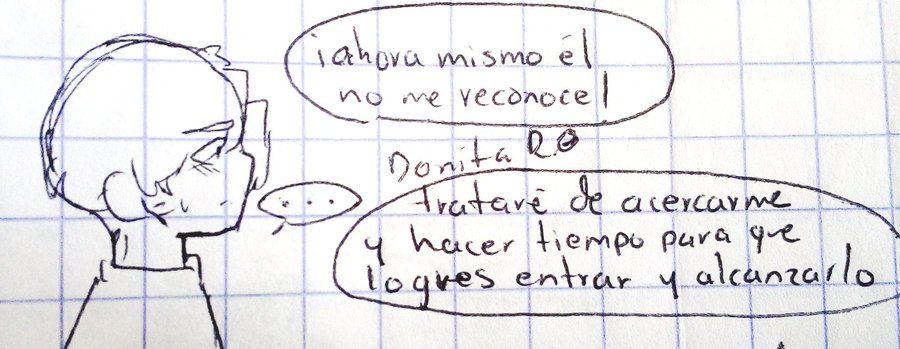 ¡ahora mismo él
no me reconoce!
Donita R.
...
trataré de acercarme
y hacer tiempo para que
logres entrar y alcanzarlo